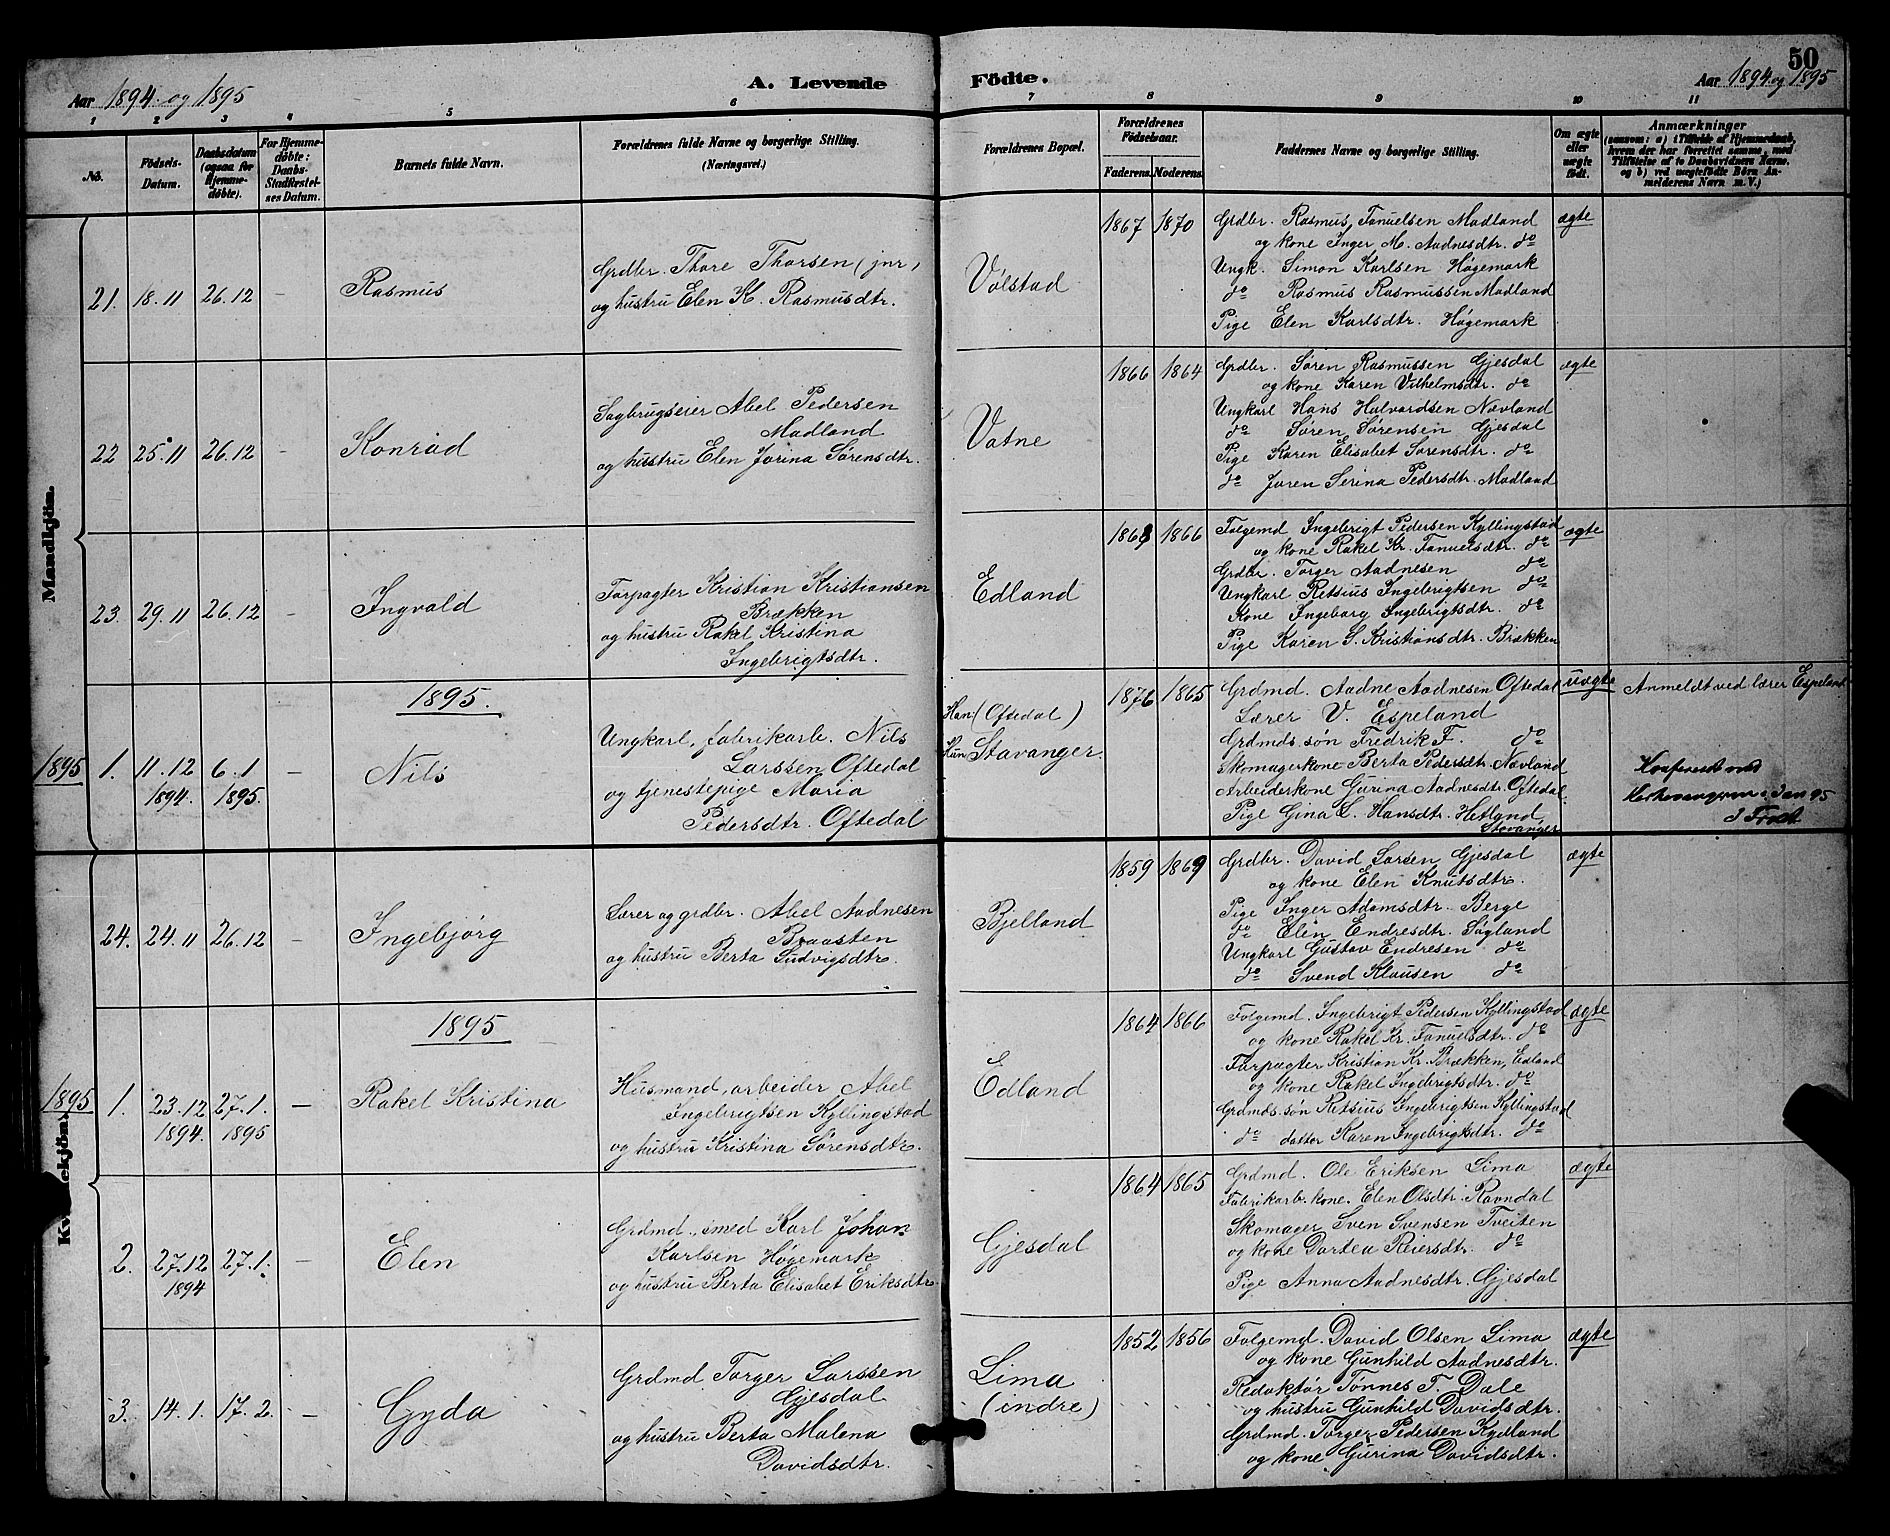 50
Aar 1894 og 1895
A. Levende Födte.
Aar 1894 og 1895
1 2 3 4 5 6 7 8 9 10 11
No.
Födsels-Datum.
Daabsdatum (ogsaa for Hjemmedöbte).
For Hjemmedöbte: Daabs-Stadfæstelses Datum.
Barnets fulde Navn.
Forældrenes fulde Navne og borgerlige Stilling. (Næringsvei.)
Forældrenes Bopæl.
Forældrenes Födselsaar.
Faderens. Moderens.
Faddernes Navne og borgerlige Stilling.
Om ægte eller uægte födt.
Anmærkninger
(saasom: a) i Tilfælde af Hjemmedaab, hvem der har forrettet samme, med Tilföielse af to Daabsvidners Navne, og b) ved uægtefödte Börn Anmelderens Navn m. V.)
Mandkjön.
21. 18.11 26.12 – Rasmus
Grdbr. Thore Thorsen (jnr)
og hustru Elen K. Rasmusdtr.
Vølstad
1867 1870
Grdbr. Rasmus Tanuelsen Madland
og kone Inger M. Aadnesdtr. do
Ungk. Simon Karlsen Høgemark
do Rasmus Rasmussen Madland
Pige Elen Karlsdtr. Høgemark
ægte
22 25.11 26.12 – Konrad
Sagbrugseier Abel Pedersen
Madland
og hustru Elen Jorina Sørensdtr.
Vatne
1866 1864
Grdbr. Søren Rasmussen Gjesdal
og kone Karen Vilhelmsdtr. do
Ungkarl Hans Halvardsen Nævland
do Søren Sørensen Gjesdal
Pige Karen Elisabet Sørensdtr. do
do Joren Serina Pedersdtr. Madland
ægte
23. 29.11 26.12 – Ingvald
Forpagter Kristian Kristiansen
Brækken
og hustru Rakel Kristina
Ingebrigtsdtr.
Edland
1868 1866
Folgemd Ingebrigt Pedersen Kyllingstad
og kone Rakel Kr. Tanuelsdtr. do
Grdbr. Torger Aadnesen do
Ungkarl Retsius Ingebrigtsen do
Kone Ingeborg Ingebrigtsdtr. do
Pige Karen S. Kristiansdtr. Brækken
ægte
1895.
1895 1. 11.12 1894. 6.1 1895. – Nils
Ungkarl, fabrikarb. Nils
Larssen Oftedal
og tjenestepige Maria
Pedersdtr. Oftedal
Han (Oftedal)
Hun Stavanger
1876 1865
Grdmd. Aadne Aadnesen Oftedal
Lærer V. Espeland
Grdmds. søn Fredrik F. do
Skomagerkone Berta Pedersdtr. Nævland
Arbeiderkone Gurina Aadnesdtr. Oftedal
Pige Gina C. Hansdtr. Hetland
Stavanger
uægte
Anmeldt ved lærer Espeland
Jan 95
Kvindekjön.
24. 24.11 26.12 – Ingebjørg
Lærer og grdbr. Abel Aadnesen
Braasten
og hustru Berta Ludvigsdtr.
Bjelland
1859 1869
Grdbr. David Larsen Gjesdal
og kone Elen Knutsdtr.
Pige Inger Adamsdtr. Berge
do Elen Endresdtr. Sagland
Ungkarl Gustav Endresen do
do Svend Klausen do
ægte
1895
1895 1. 23.12 1894. 27.1. 1895 – Rakel Kristina
Husmand, arbeider Abel
Ingebrigtsen Kyllingstad
og hustru Kristina Sørensdtr.
Edland
1864 1866
Folgemd. Ingebrigt Pedersen Kyllingstad
og kone Rakel Kr. Tanuelsdtr. do
Forpagter Kristian Kr. Brækken, Edland
og kone Rakel Ingebrigtsdtr. do
Grdmds. søn Retsius Ingebrigtsen Kyllingstad
do datter Karen Ingebrigtsdtr. do
ægte
2. 27.12 1894 27.1. – Elen
Grdmd., smed Karl Johan
Karlsen Høgemark
og hustru Berta Elisabet Eriksdtr.
Gjesdal
1864 1865
Grdmd. Ole Eriksen Lima
Fabrikarb. kone. Elen Olsdtr. Ravndal
Skomager Sven Svensen Tveiten
og kone Dortea Reiersdtr. do
Pige Anna Aadnesdtr. Gjesdal
ægte
3. 14.1. 17.2. – Gyda
Grdmd Torger Larssen
Gjesdal
og hustru Berta Malena
Davidsdtr.
Lima
(indre)
1852 1856
Folgemd. David Olsen Lima
og kone Gunhild Aadnesdtr.
Redaktør Tønnes T. Dale
og hustru Gunhild Davidsdtr.
Grdmd. Torger Pedersen Kydland
og kone Gurina Davidsdtr.
ægte